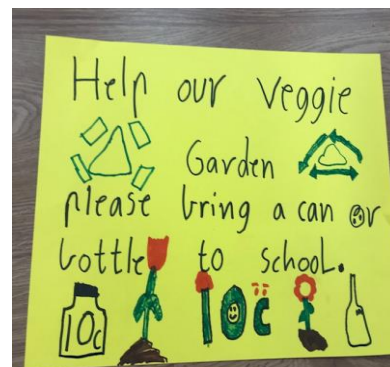 Help our veggie
Garden
please bring a can or
bottle to school.
10c 10c